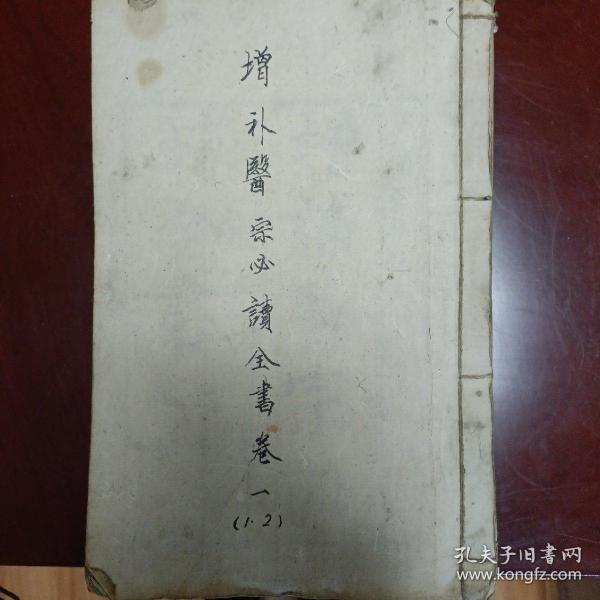 增补醫宗必讀全書卷一
(1.2)
孔夫子旧書网
www.kongfz.com